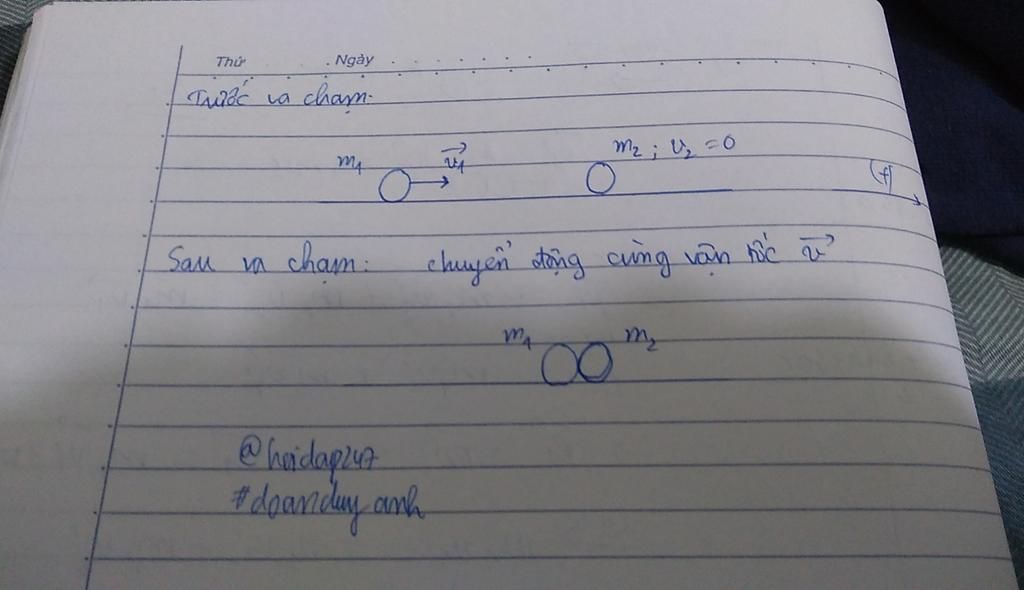 Thứ Ngày
Trước va chạm.
m₁ v₁ m₂ ; v₂ = 0
(+)
Sau va chạm: chuyển động cùng vận tốc v
m₁ m₂
@hoidap247
#doanduy anh